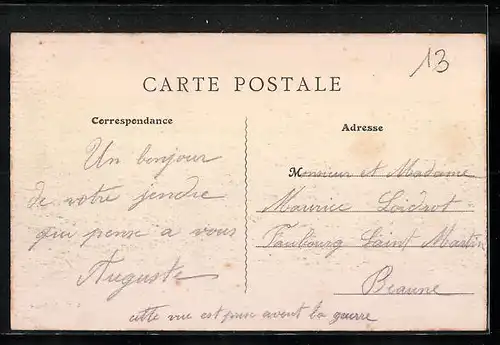 13
CARTE POSTALE
Correspondance
Un bonjour
de votre jendre
qui pense a vous
Auguste
Adresse
Monsieur et Madame
Maurice Loidrot
Faubourg Saint Martin
Beaune
cette vue est prise avent la guerre